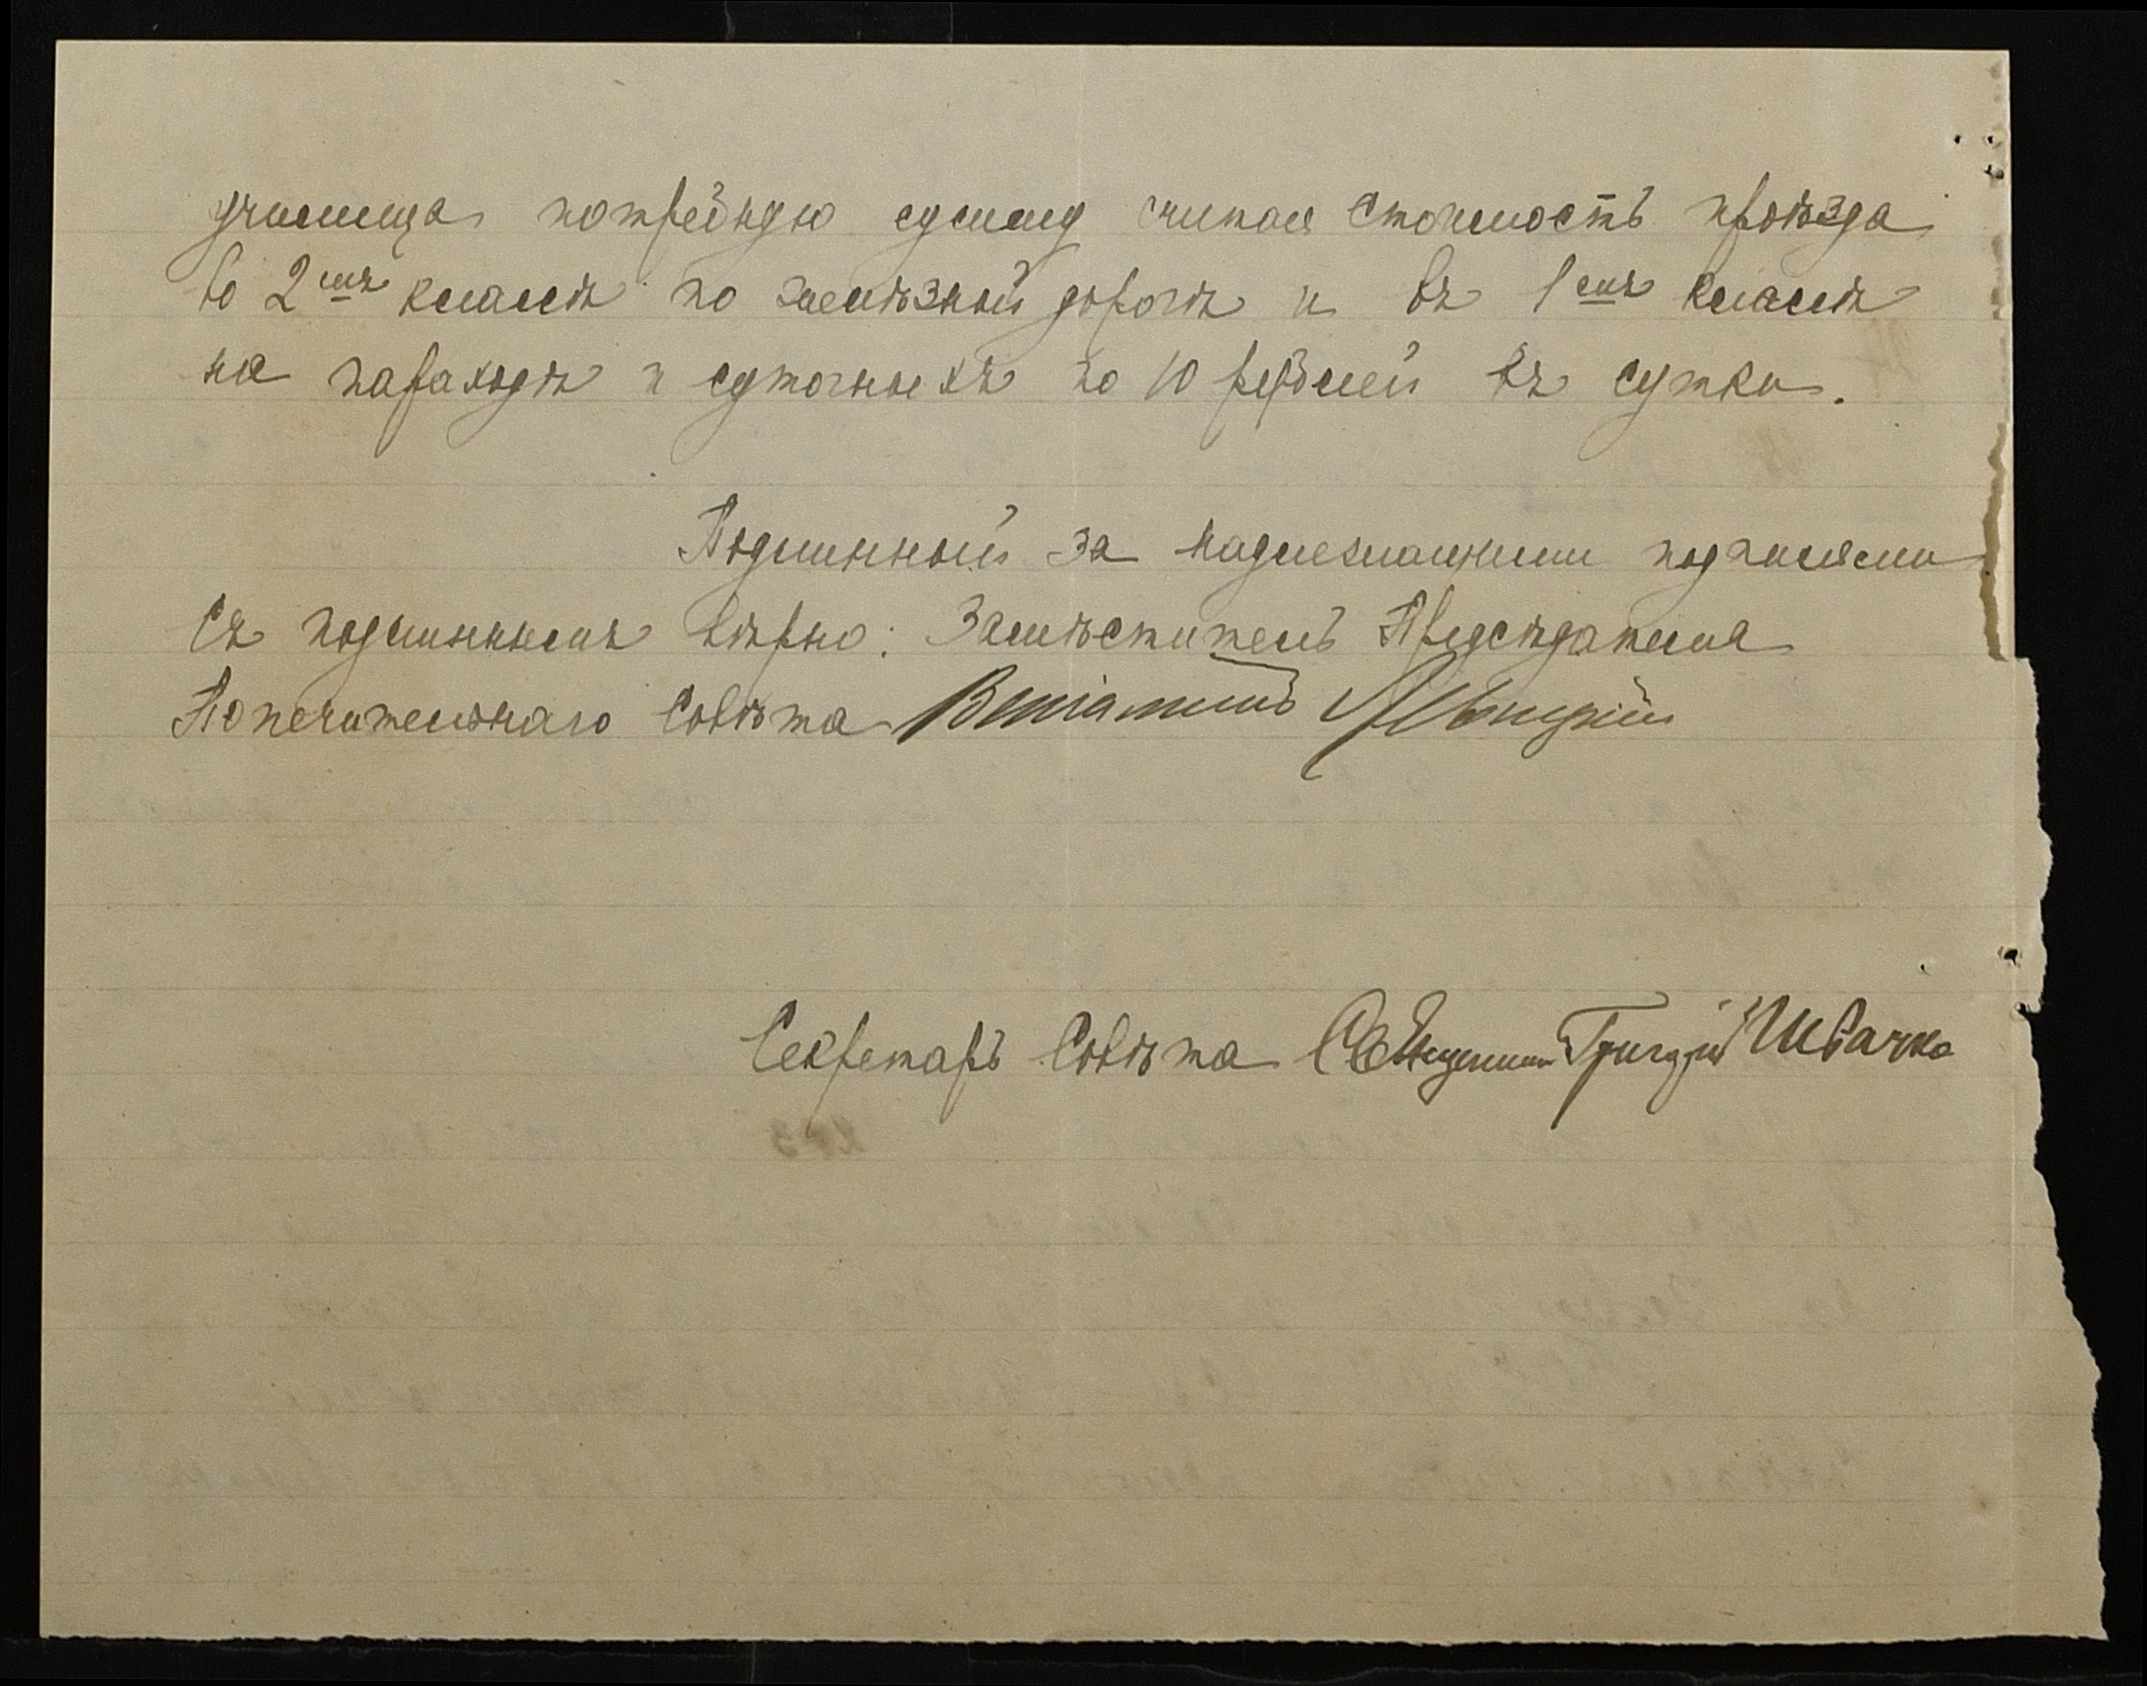 училища потребную сумму считая стоимость проѣзда
во 2омъ классѣ по желѣзной дорогѣ и въ 1омъ классѣ
на параходѣ и суточныхъ по 10 рублей въ сутки.
Подлинный за надлежащими подписями
Съ подлиннымъ вѣрно: Замѣститель Предсѣдателя
Попечительнаго Совѣта Веніаминъ
Секретарь Совѣта Священник Григорій Швачко